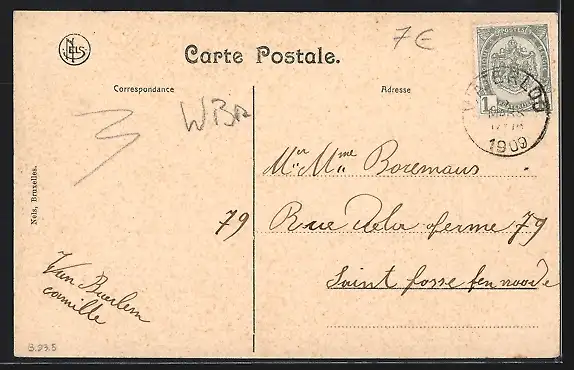 NELS
Carte Postale.
7€
Correspondance
Adresse
1
MARS
1909
WBR
3
Mr Mme Boremans
79
Rue de la ferme 79
Saint Josse ten noode
Van Baerlem
camille
Nels, Bruxelles.
S.23.5